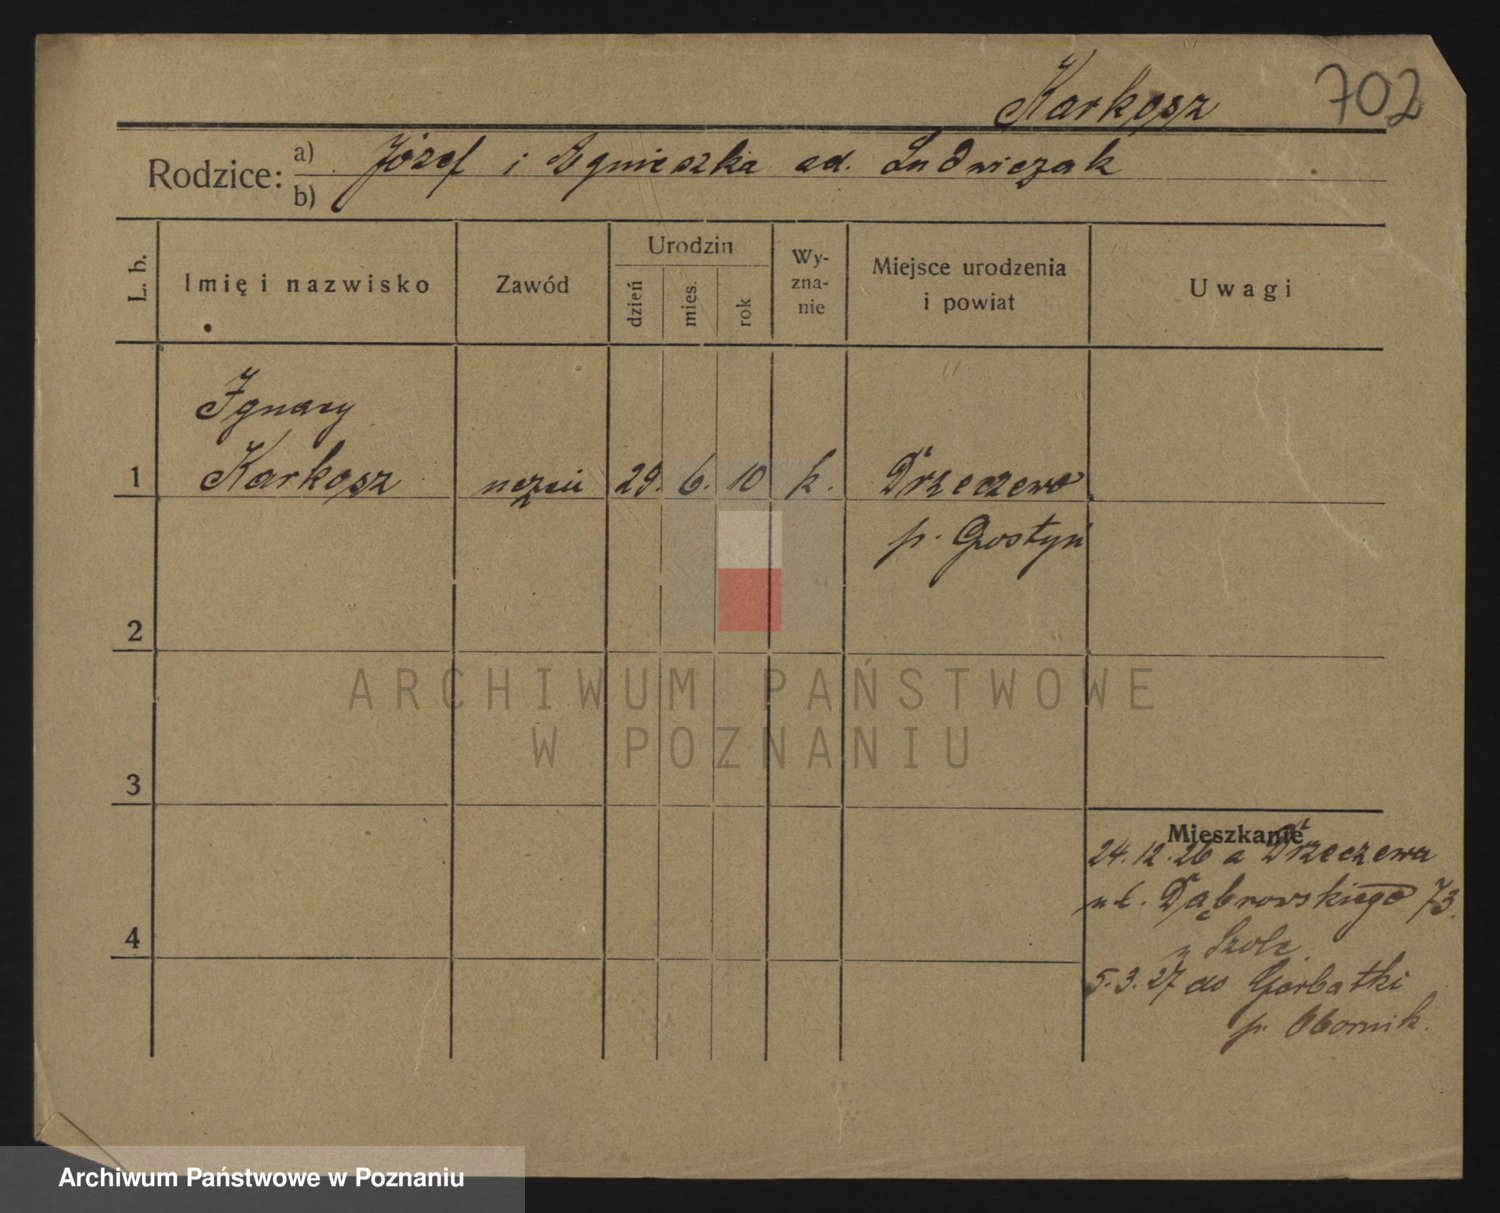 Karkosz 702
Rodzice: a) Józef i Agnieszka
b)
L. b.
Imię i nazwisko
Zawód
Urodzin
dzień
mies.
rok
Wy-
zna-
nie
Miejsce urodzenia
i powiat
Uwagi
Ignacy
1 Karkosz uczeń 29. 6. 10 k. Drzeczewo
p. Gostyń
2
ARCHIWUM PAŃSTWOWE
W POZNANIU
3
Mieszkanie
24.12.26 a Drzeczewa
ul. Dąbrowskiego 73.
4
u
5.3.27 do Garbatki
p. Obornik.
Archiwum Państwowe w Poznaniu